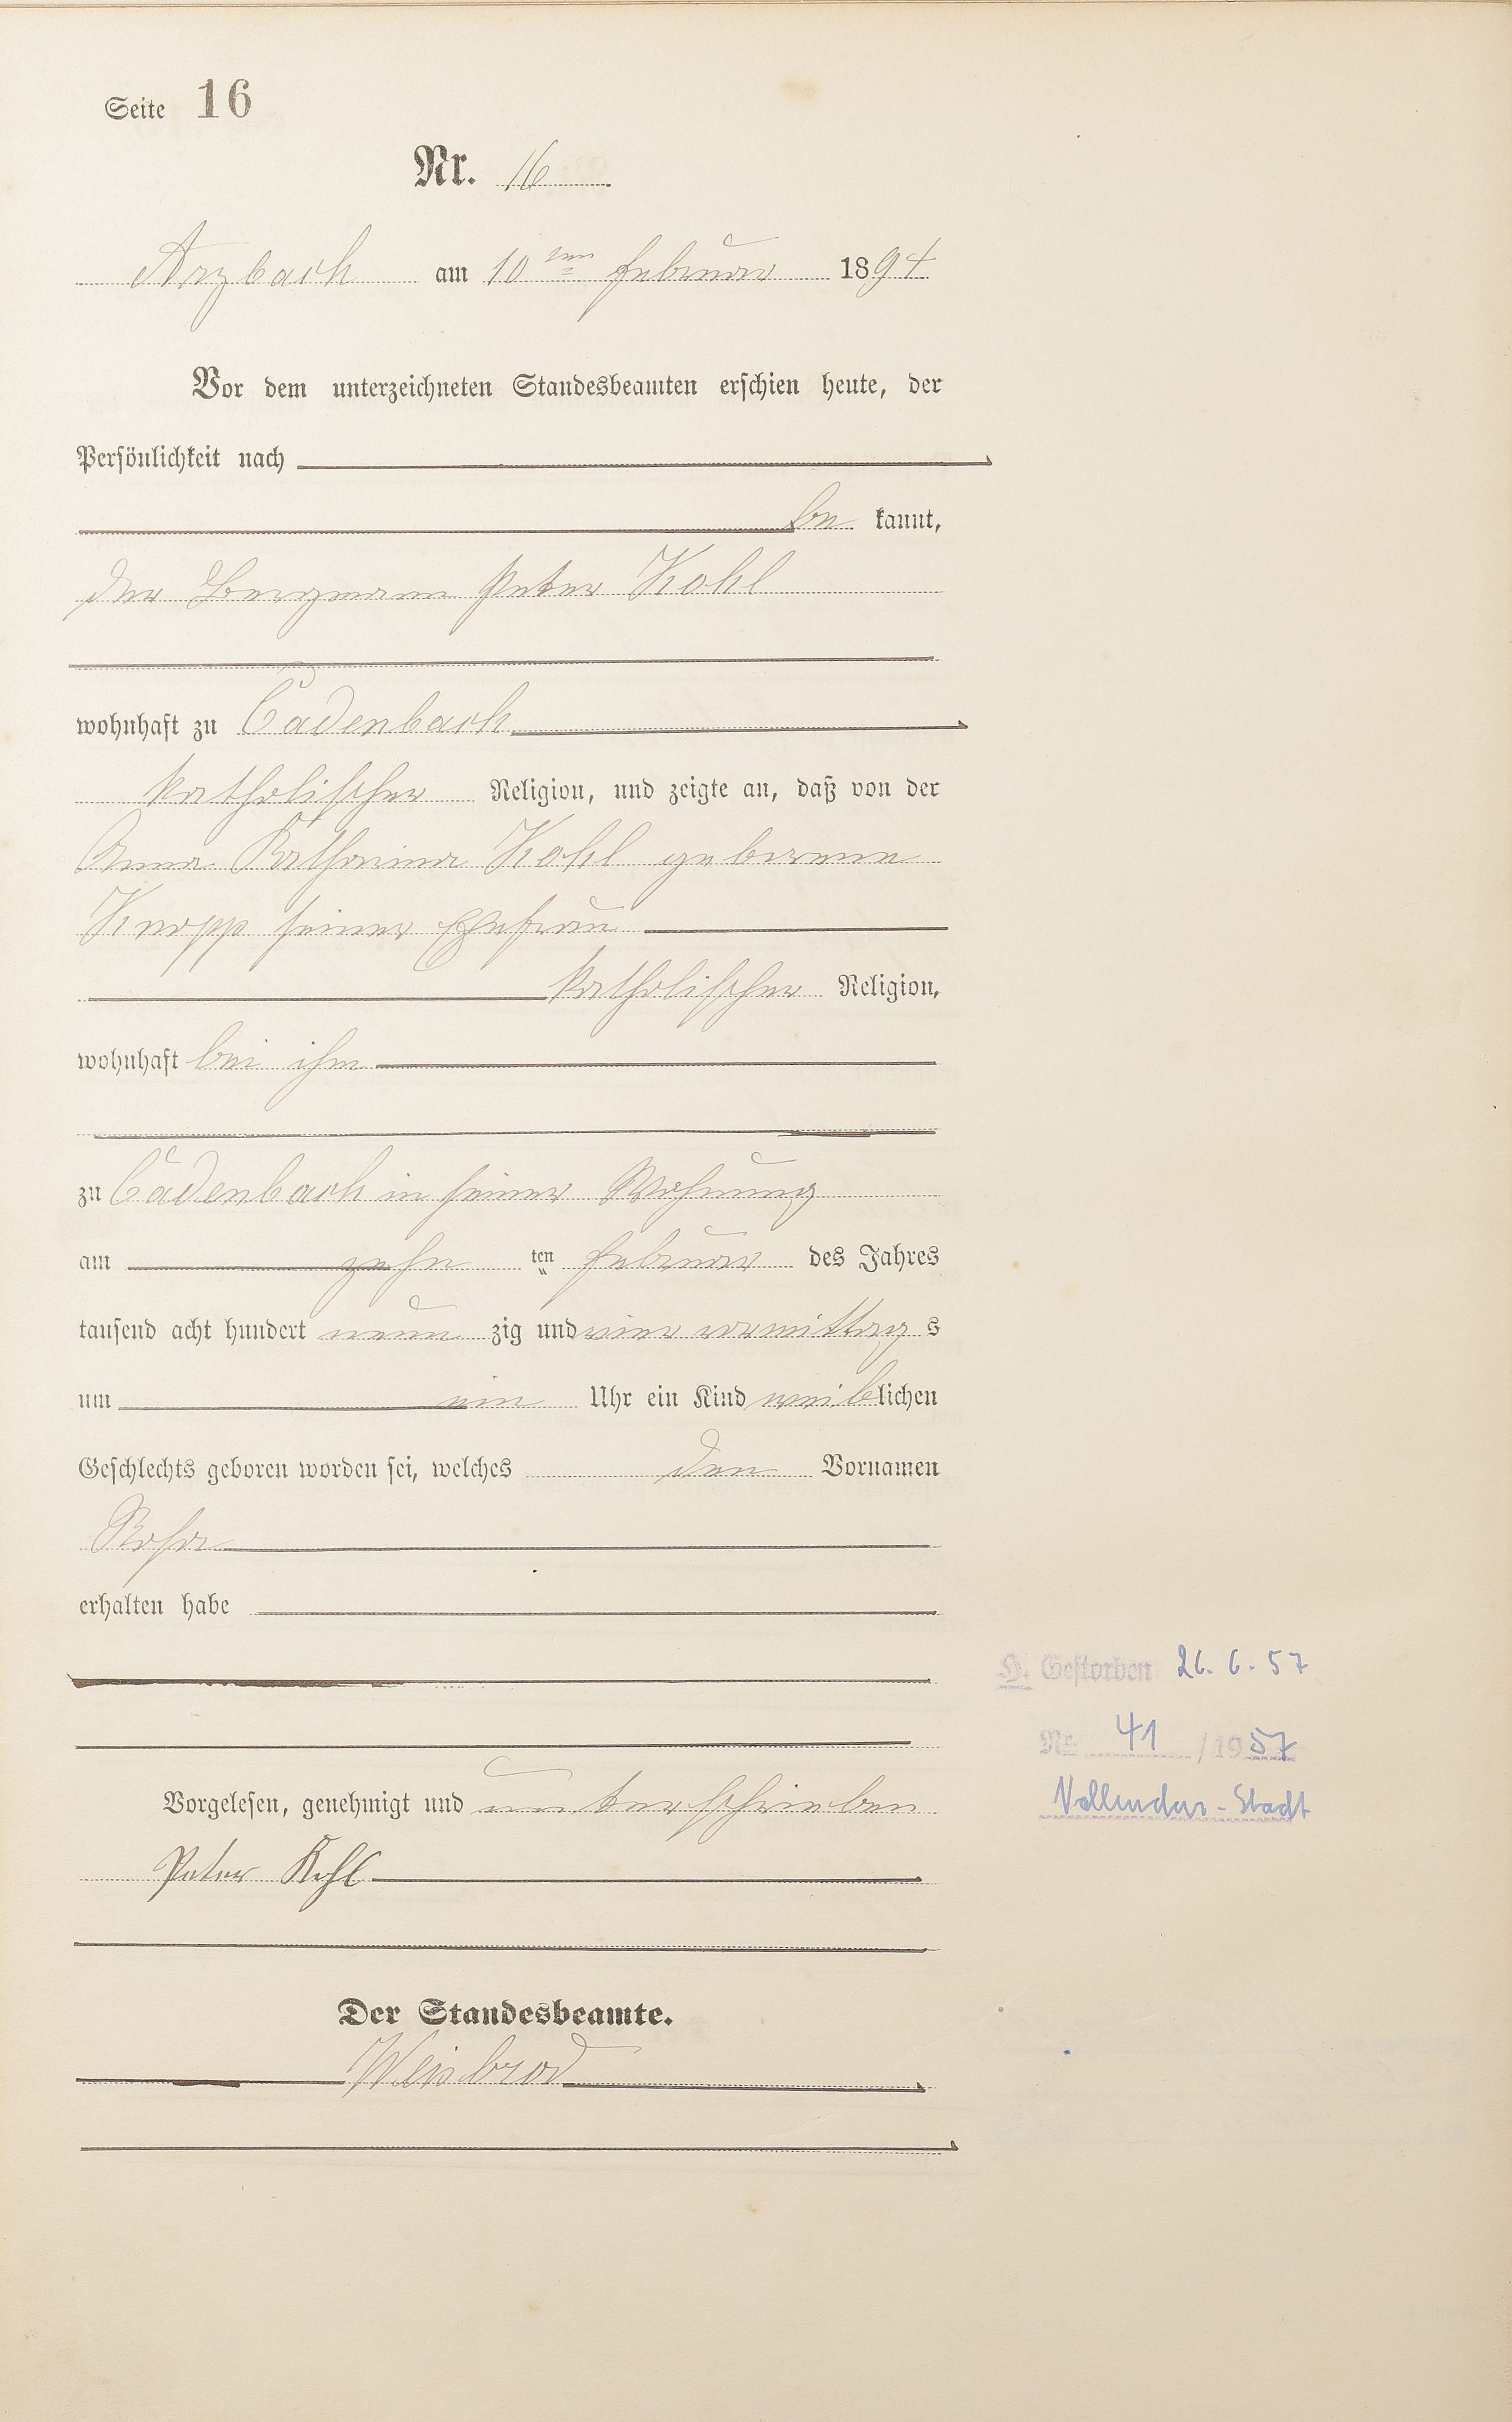 Seite 16
Nr. 16
Arzbach am 10ten Februar 1894
Vor dem unterzeichneten Standesbeamten erschien heute, der
Persönlichkeit nach
be kannt,
der Bergmann Peter Kohl
wohnhaft zu Cadenbach
katholischer Religion, und zeigte an, daß von der
Anna Katharina Kohl geborene
Knopp seiner Ehefrau
katholischer Religion,
wohnhaft bei ihm
zu Cadenbach in seiner Wohnung
am zehn ten Februar des Jahres
tausend acht hundert neun zig und vier vormittag s
um ein Uhr ein Kind weiblichen
Geschlechts geboren worden sei, welches den Vornamen
Rosa
erhalten habe
H. Gestorben 26. 6. 57
Nr. 41 / 1957
Vallendar-Stadt
Vorgelesen, genehmigt und unterschrieben
Peter Kohl
Der Standesbeamte.
Weisbrod